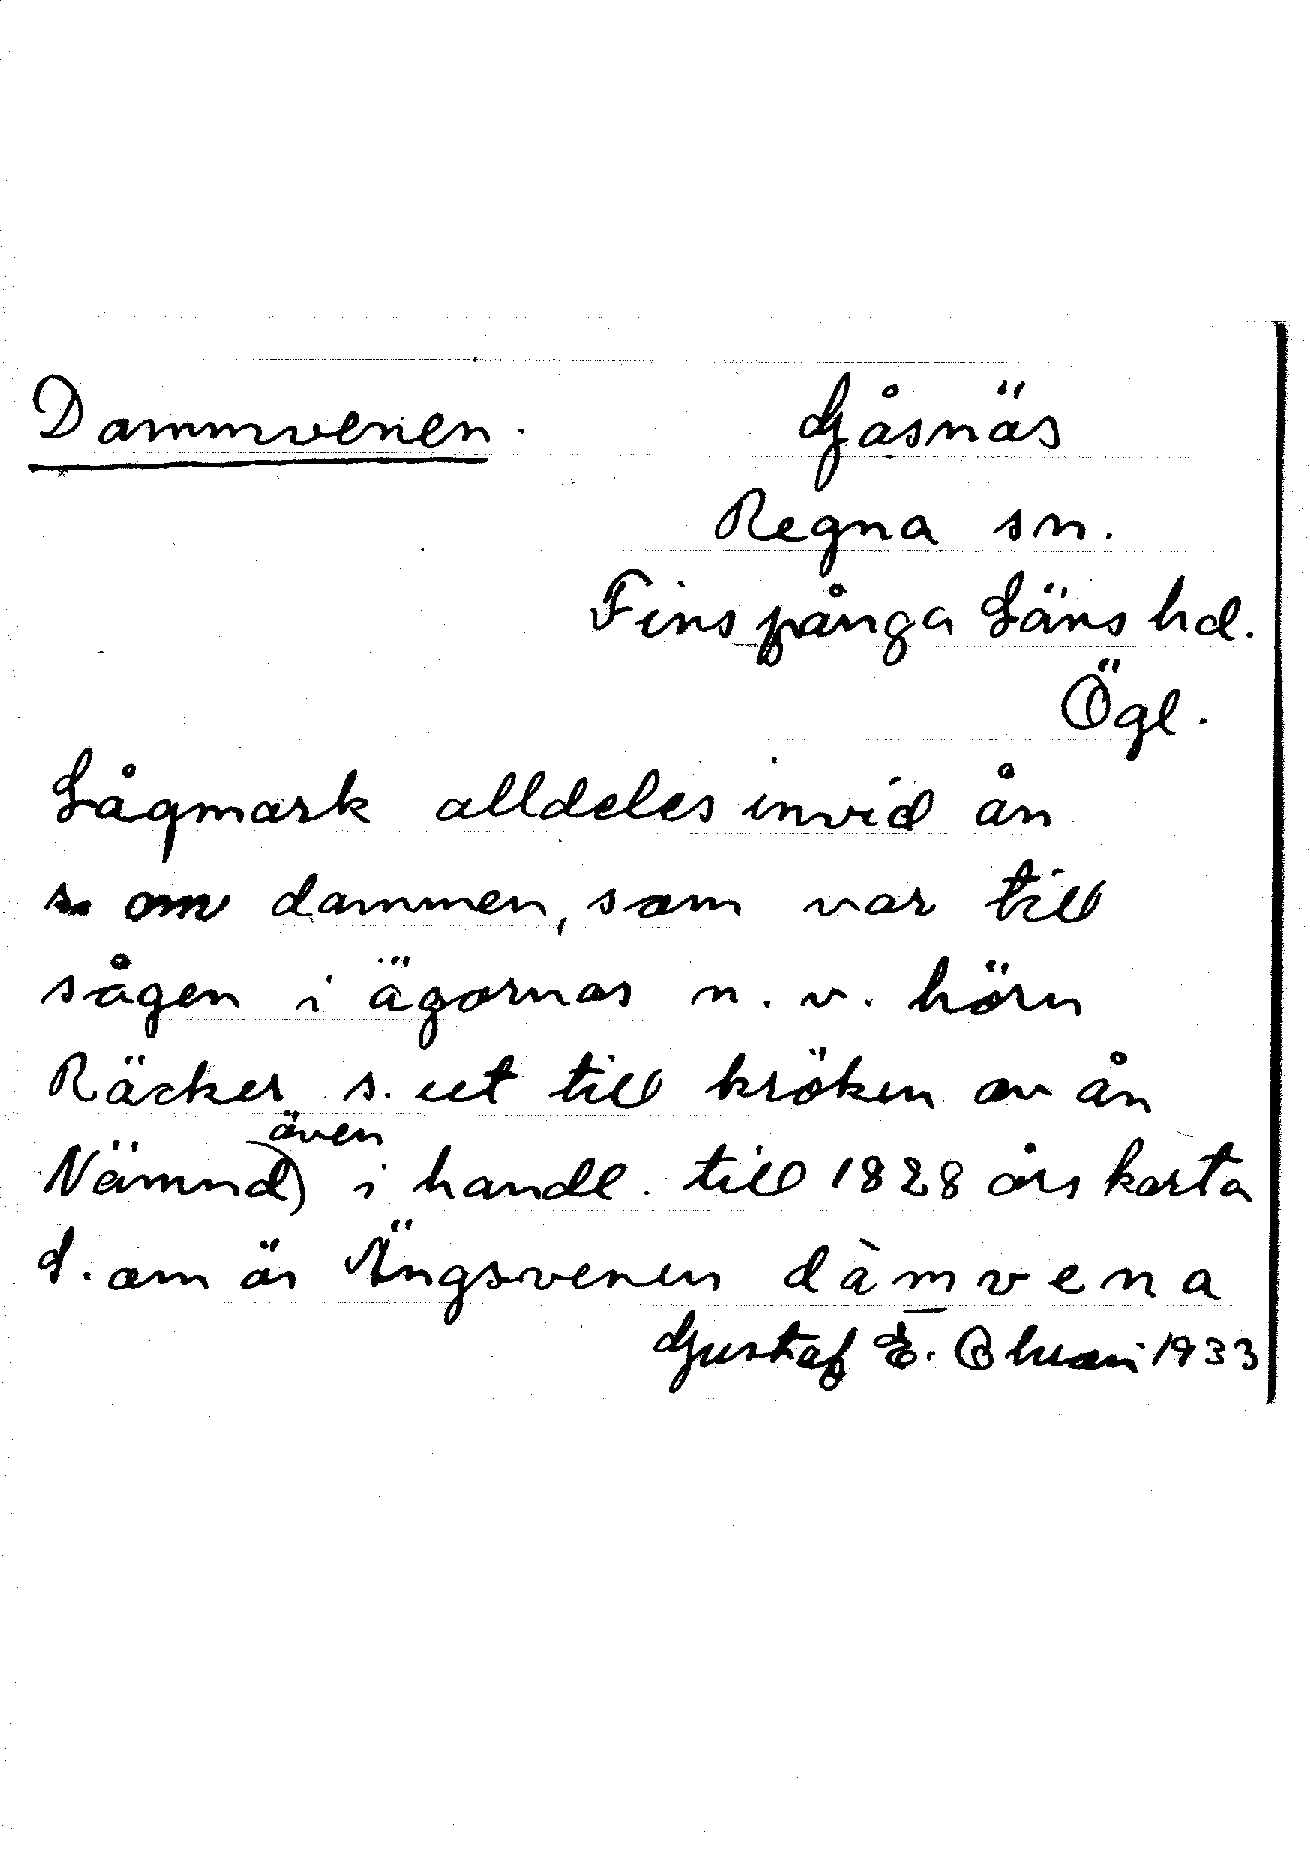 Dammvenen. Gåsnäs
Regna sn.
Finspånga Läns hd.
Ögl.
Lågmark alldeles invid ån
s. om dammen, som var till
sågen i ägornas n. v. hörn
Räcker s. ut till kröken av ån
Nämnd även i handl. till 1828 års karta
L. om är Ängsvenen dàmvena
Gustaf E. 1933